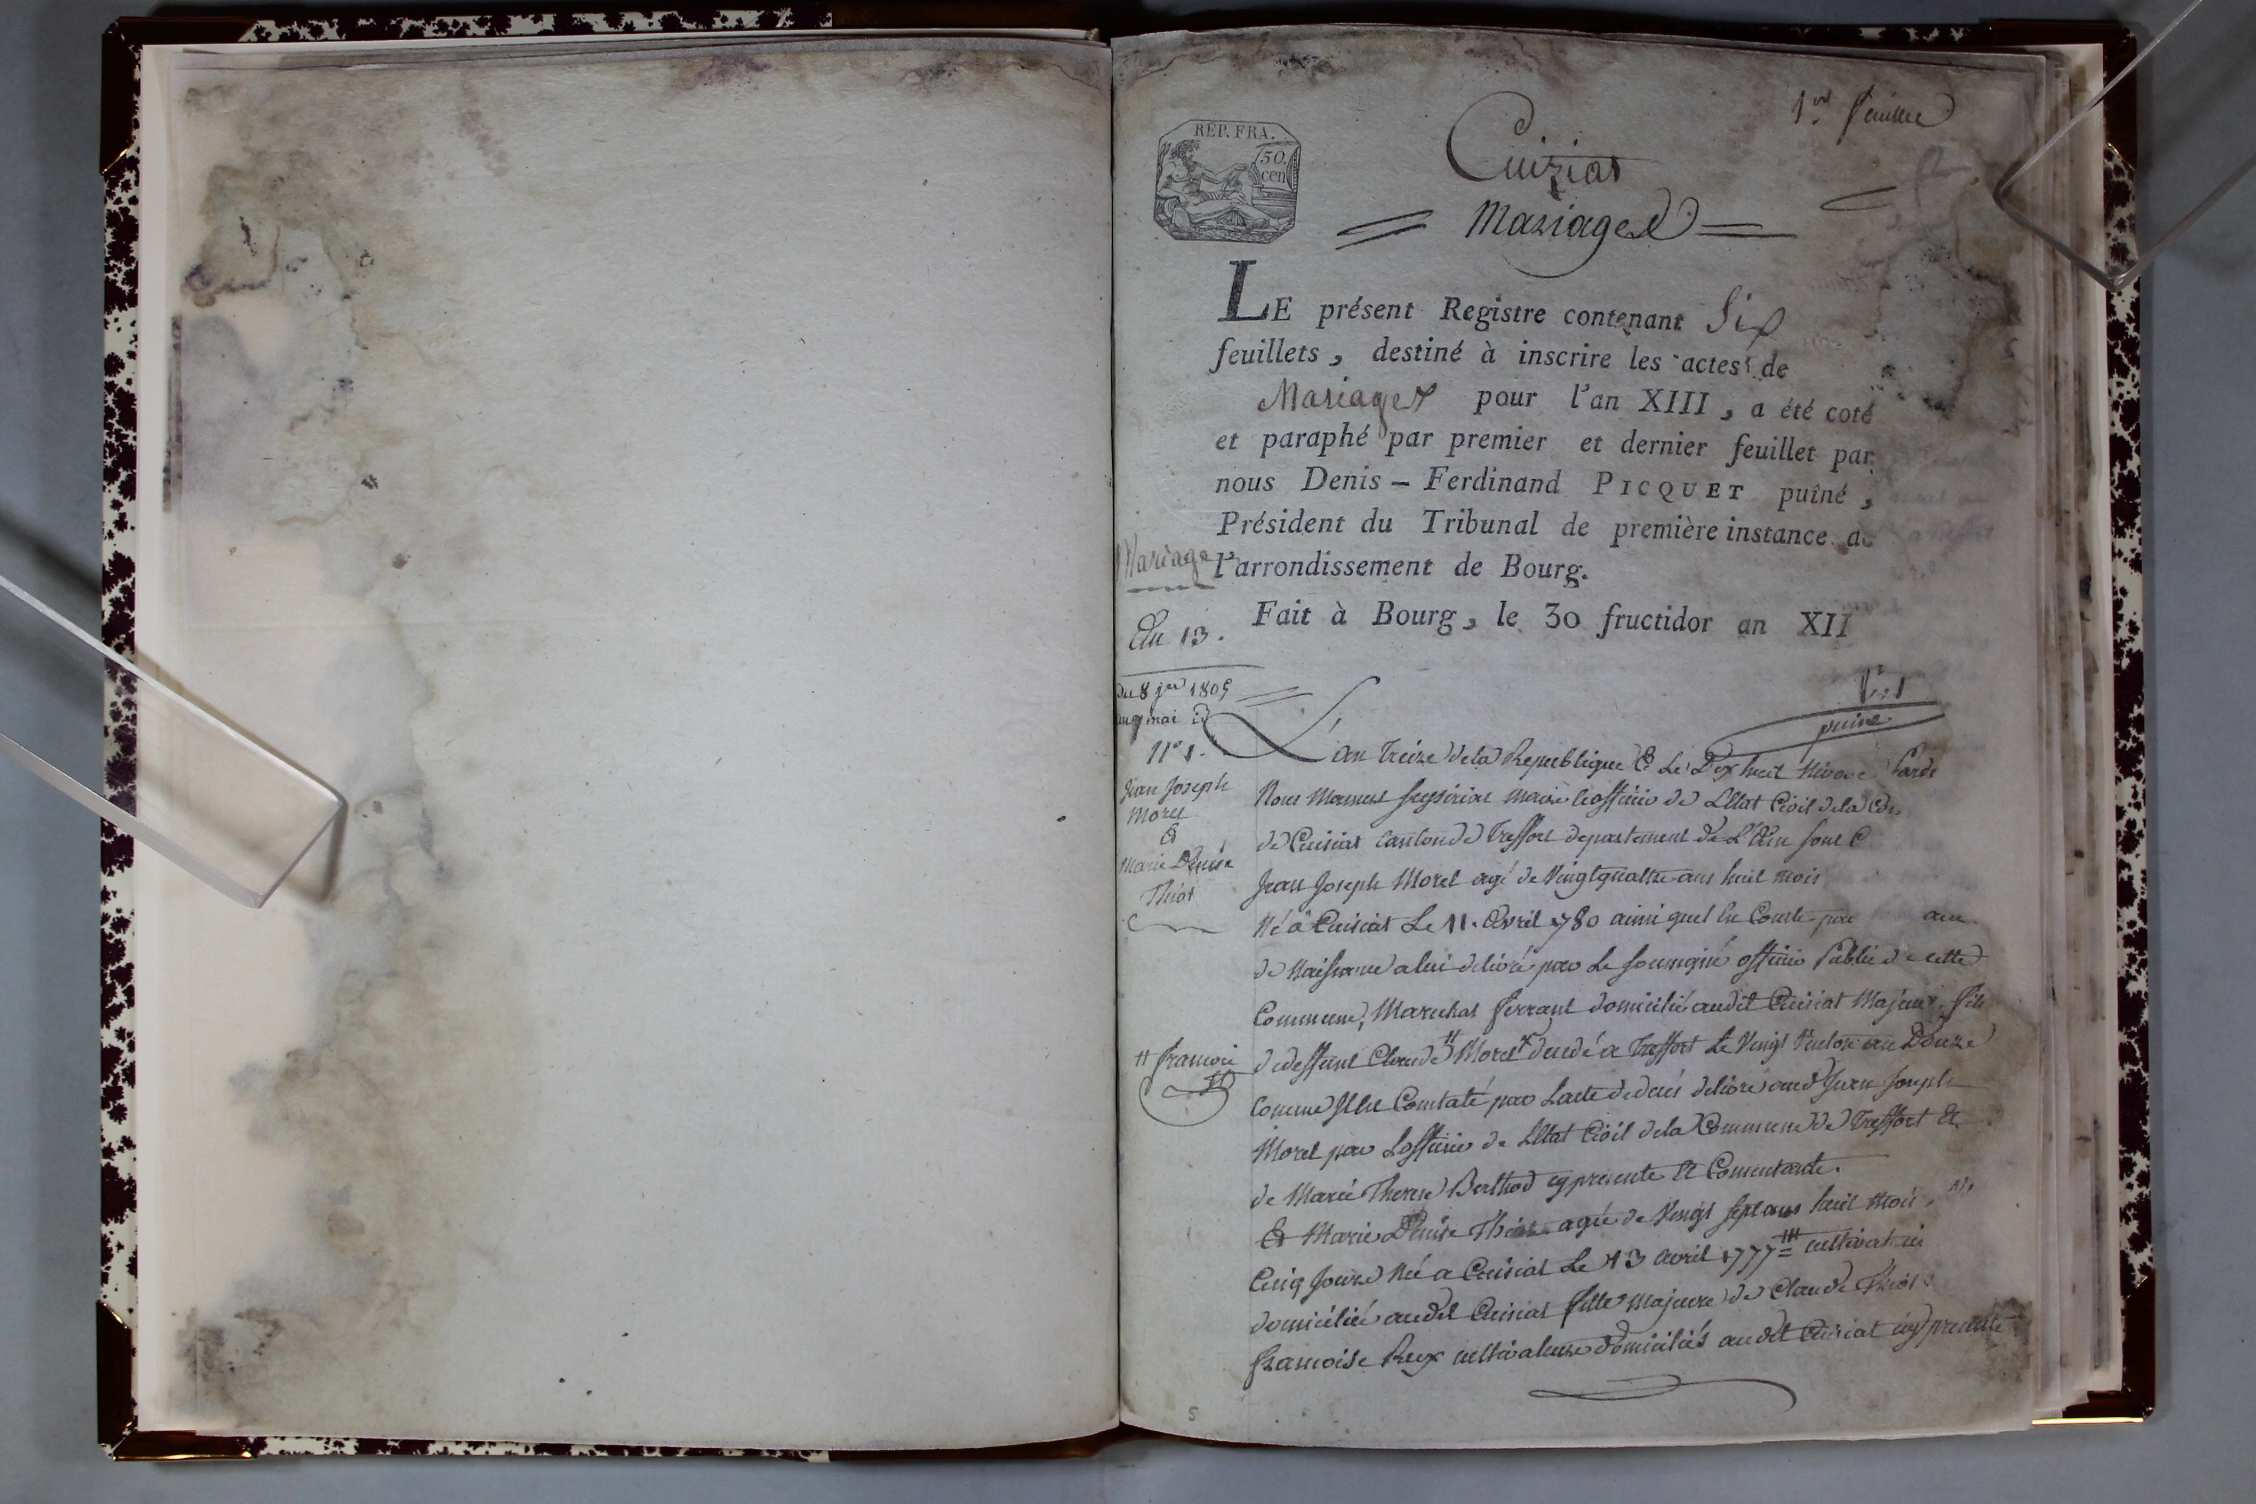 1er feuillet
REP. FRA.
50.
cen
Cuiziat
Mariages
LE présent Registre contenant Six
feuillets, destiné à inscrire les actes de
Mariages pour l'an XIII, a été coté
et paraphé par premier et dernier feuillet par
nous Denis – Ferdinand PICQUET puîné,
Président du Tribunal de première instance de
l'arrondissement de Bourg.
Fait à Bourg, le 30 fructidor an XII
puiné
Mariage
An 13.
du 8 jer 1805
au 9 mai id
No 1.
Jean Joseph
Morel
&
Marie Denise
Thiot
L'an Treize de la Republique & Le Dix huit Nivose Pardt
Nous maire & officier de L'Etat Civil de la
de Cuisiat canton de Treffort departement de L'Ain sont C
Jean Joseph Morel agé de Vingtquatre ans huit mois
Né à Cuisiat Le 11. Avril 1780 ainsi quel est Consté par
de Naissance a lui delivré par Le soussigné officier Public de cette
Commune, Marechal ferrant domicilié audit Cuisiat Majeur, fils
de deffunt Claude Morel decedé a Treffort Le Vingt Ventose an Douze
Comme Il est Constaté par Lacte de deces delivré aud Jean Joseph
Morel par Lofficier de L'Etat Civil de la Commune de Treffort Et
de Marie Therese Berthod cy presente Et Consentante.
Et Marie Denise Thiot agée de Vingt sept ans huit mois
Cinq Jours Née a Cuisiat Le 13 avril 1777 cultivatrice
domiciliée audit Cuisiat fille majeure de Claude Thiot
francoise Rey cultivateurs domiciliés audit Cuisiat icy presents
francois
5